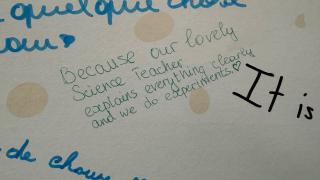 quelque chose
Because our lovely
Science Teacher
explains everything clearly
and we do experiments.♡
It is
de